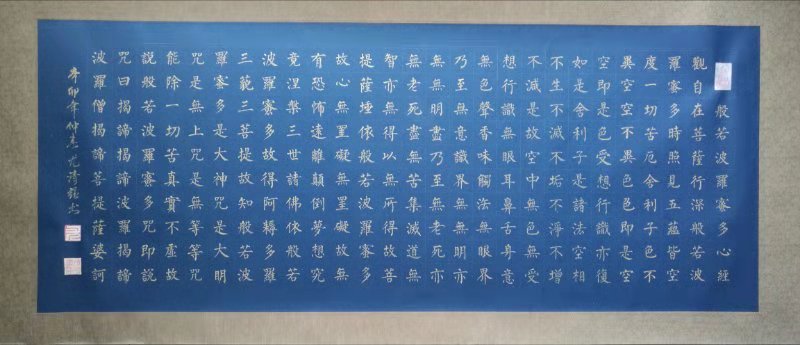 般若波羅蜜多心經
觀自在菩薩行深般若波
羅蜜多時照見五蘊皆空
度一切苦厄舍利子色不
異空空不異色色即是空
空即是色受想行識亦復
如是舍利子是諸法空相
不生不滅不垢不淨不增
不減是故空中無色無受
想行識無眼耳鼻舌身意
無色聲香味觸法無眼界
乃至無意識界無無明亦
無無明盡乃至無老死亦
無老死盡無苦集滅道無
智亦無得以無所得故菩
提薩埵依般若波羅蜜多
故心無罣礙無罣礙故無
有恐怖遠離顛倒夢想究
竟涅槃三世諸佛依般若
波羅蜜多故得阿耨多羅
三藐三菩提故知般若波
羅蜜多是大神咒是大明
咒是無上咒是無等等咒
能除一切苦真實不虛故
說般若波羅蜜多咒即說
咒曰揭諦揭諦波羅揭諦
波羅僧揭諦菩提薩婆訶
辛卯年仲